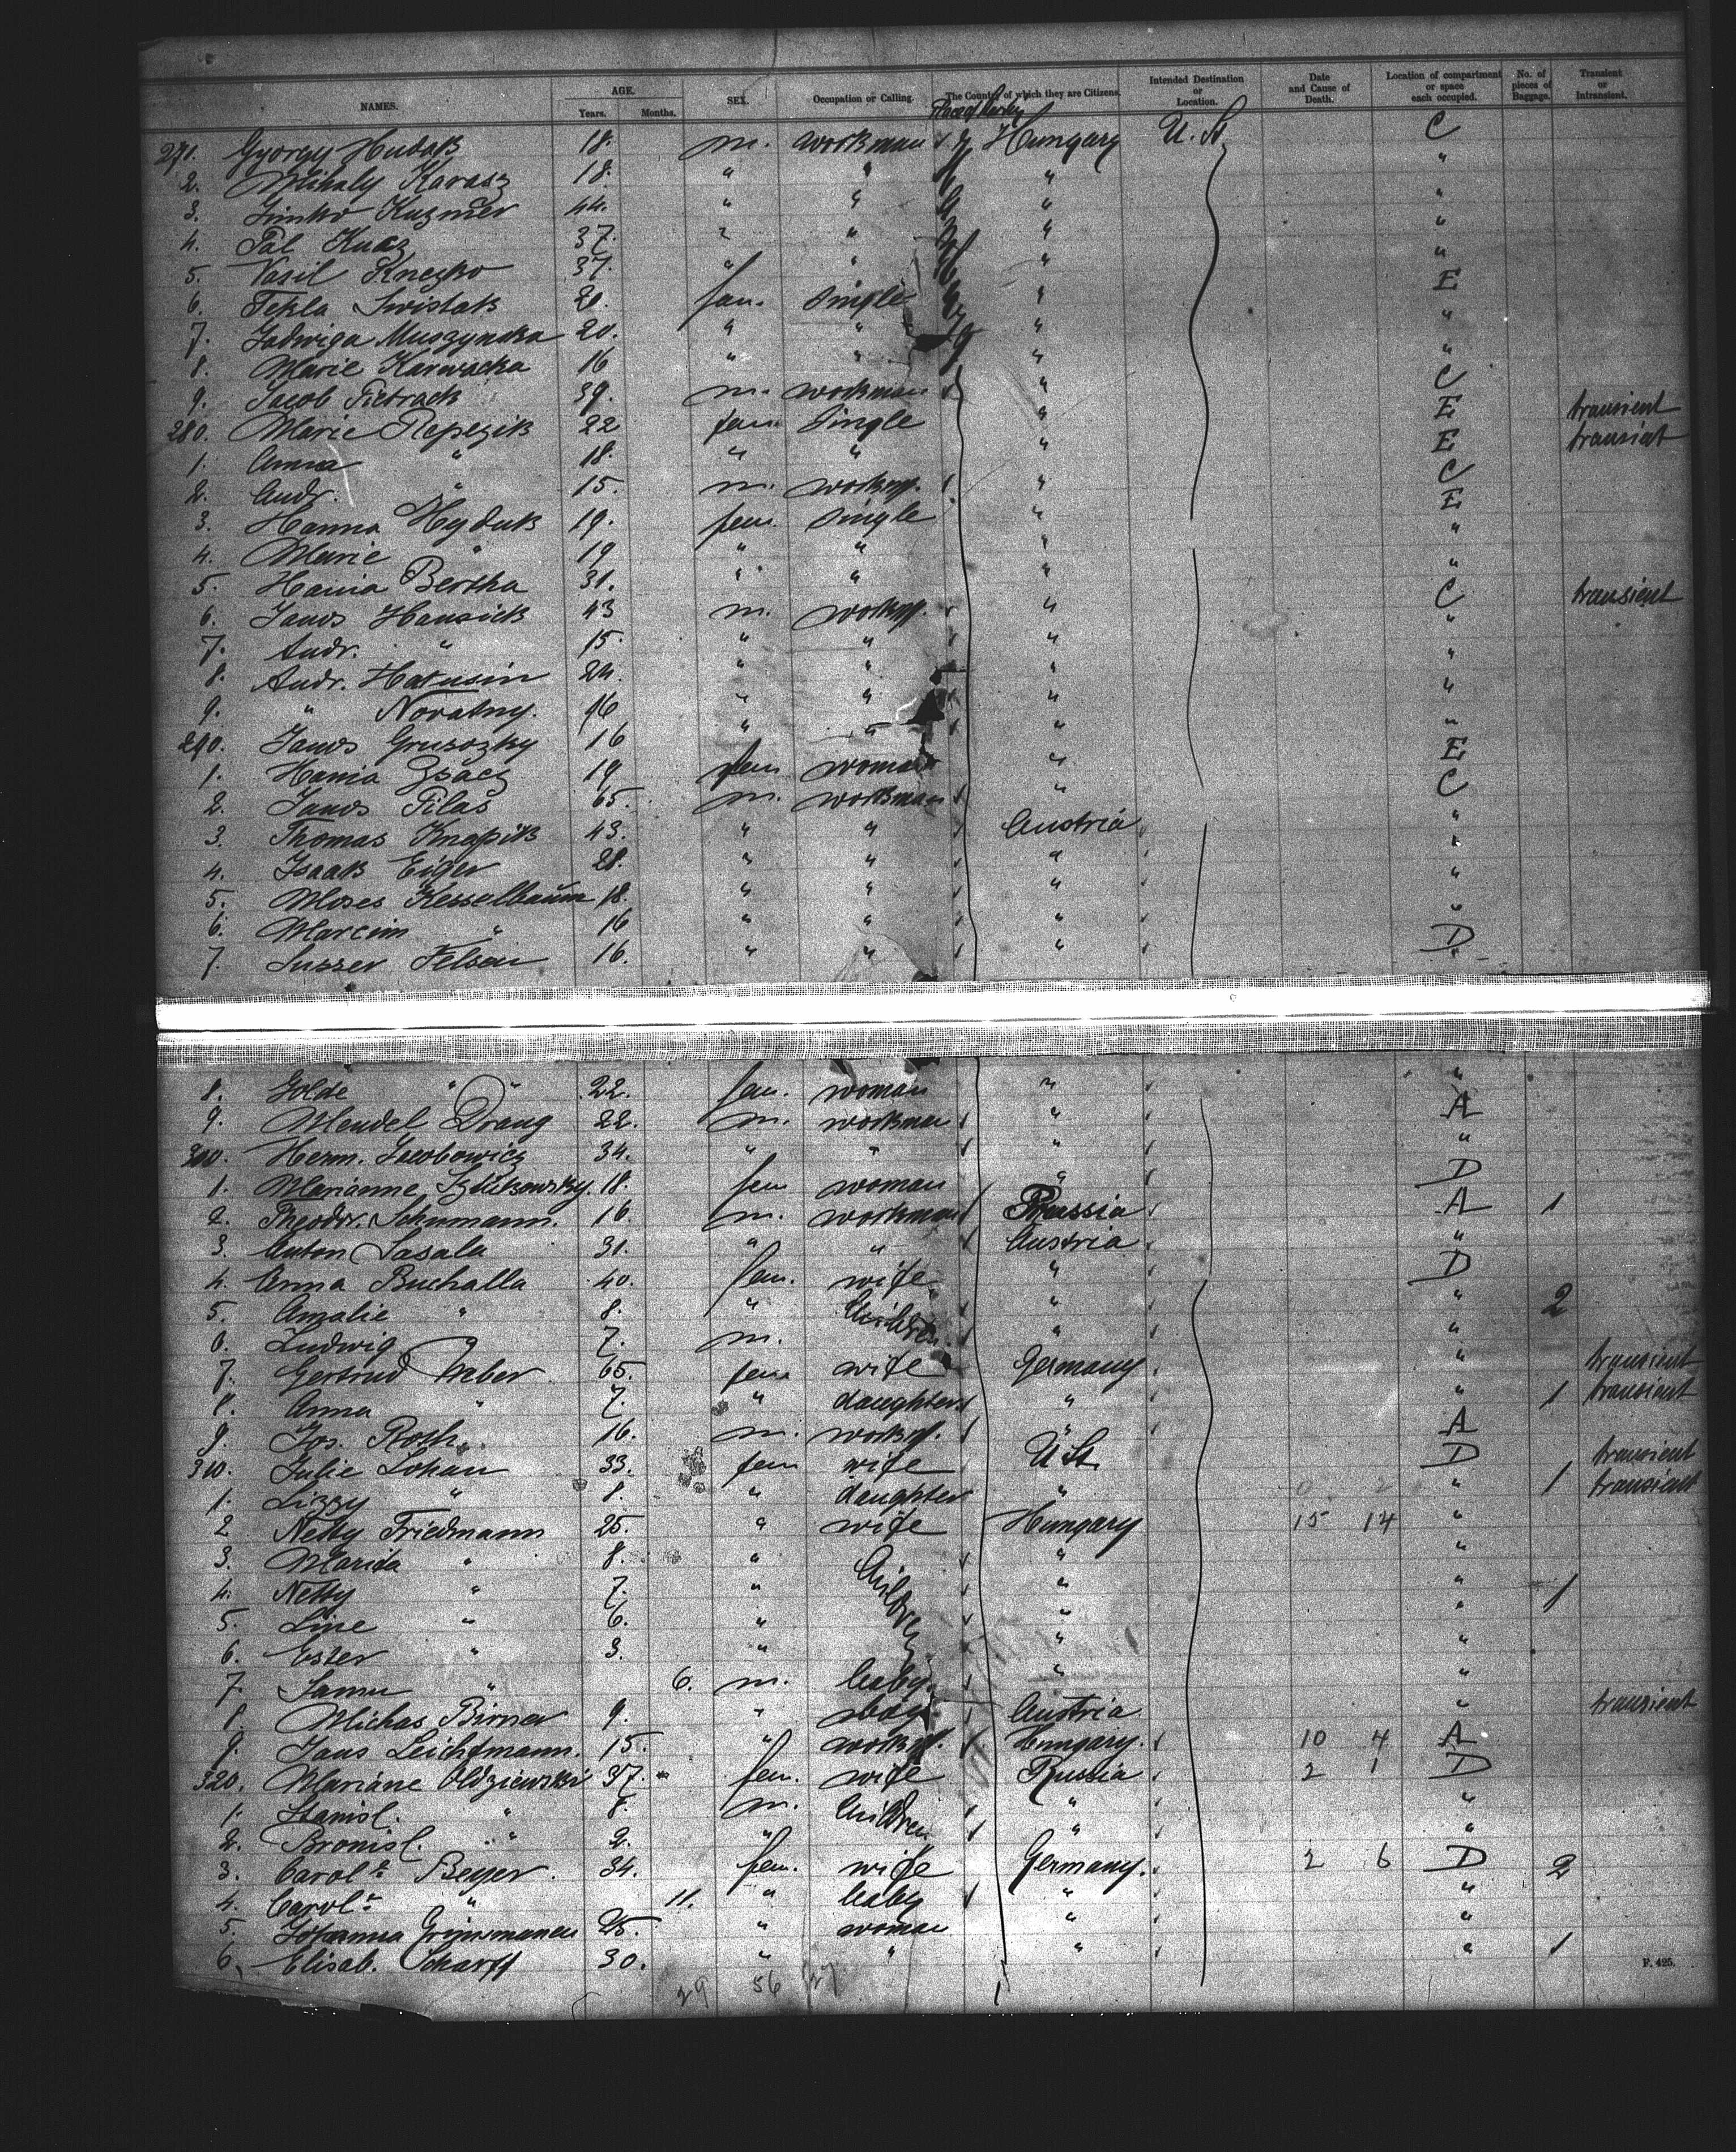 NAMES. AGE. Years. Months. SEX. Occupation or Calling. The Country of which they are Citizens. Intended Destination or Location. Date and Cause of Death. Location of compartment or space each occupied. No. of pieces of Baggage. Transient or Intransient.
271. Gyorgy Hudak 18. m. workman Hungary U. St. C
2. Mihaly Karasz 18. " " " "
3. Simko Kuzmer 44. " " " "
4. Pal Kucz 37. " " " "
5. Vasil Knezko 37. " " " "
6. Tekla Swistak 20. fem. Single " E
7. Jadwiga Muszynska 20. " " " "
8. Marie 16 " " " "
9. Jacob Pietrach 39. m. workman " C
280. Marie Repezik 22 fem. Single " E transient
1. Anna " 18. " " " E transient
2. Andr. " 15. m. workm. " C
3. Hanna Hyduk 19. fem. Single " E
4. Marie " 19 " " " "
5. Hania Bertha 31. " " " "
6. Janos Hansick 43 m. workm. " C transient
7. Andr. " 15. " " " "
8. Andr. Hatusin 24. " " " "
9. " Novatny. 46 " " " "
290. Janos Grusozky 16 " " " "
1. Hania Zsacz 19 fem woman " E
2. Janos Pilas 65. m. workman " C
3. Thomas Knapik 43. " " Austria "
4. Isaak Eiger 28. " " " "
5. Moses Kesselbaum 18. " " " "
6. Marcim " 16 " " " "
7. Susser Felsen 16. " " " D
8. Golde " " 22. fem. woman " "
9. Mendel Drang 22. m. workman " A
300. Herm. Jacobowicz 34. " " " "
1. Marianne 18. fem woman " D
2. Theodor. Schumann. 16. m. workman Prussia A 1
3. Anton Sasala 31. " " Austria "
4. Anna Buchalla 40. fem. wife " D
5. Amalie " 8. " Children " " 2
6. Ludwig " 7. m. " "
7. Gertrud Weber 65. fem wife Germany " transient
8. Anna " 7. " daughter " " 1 transient
9. Jos. Roth 16. m. workm. " A
310. Julie Lohan 33. fem wife U St. D transient
1. Lizzy " 8. " daughter " " 1 transient
2 Netty Friedmann 25. " wife Hungary 15 14 "
3. Marida " 8. " Children " "
4. Netty " 7. " " " 1
5. Line " 6. " " "
6. Ester " 3. " " "
7. Samu " 6. m. baby " "
8. Michas Birner 9. " boy Austria " transient
9. Jans Leichtmann. 15. " workm. Hungary. 10 4 A
320. Mariane Oldziewski 37. fem. wife Russia 2 1 D
1. Stanisl. " 8. m. Children " "
2. Bronisl. " 2. " " "
3. Carole Beyer. 34. fem. wife Germany. 2 6 D 2
4. Carole " 11. " baby " "
5. Johanna Grinsmanen 25. " woman " "
6. Elisab. Scharff 30. " " " " 1
29 56 27
F. 425.